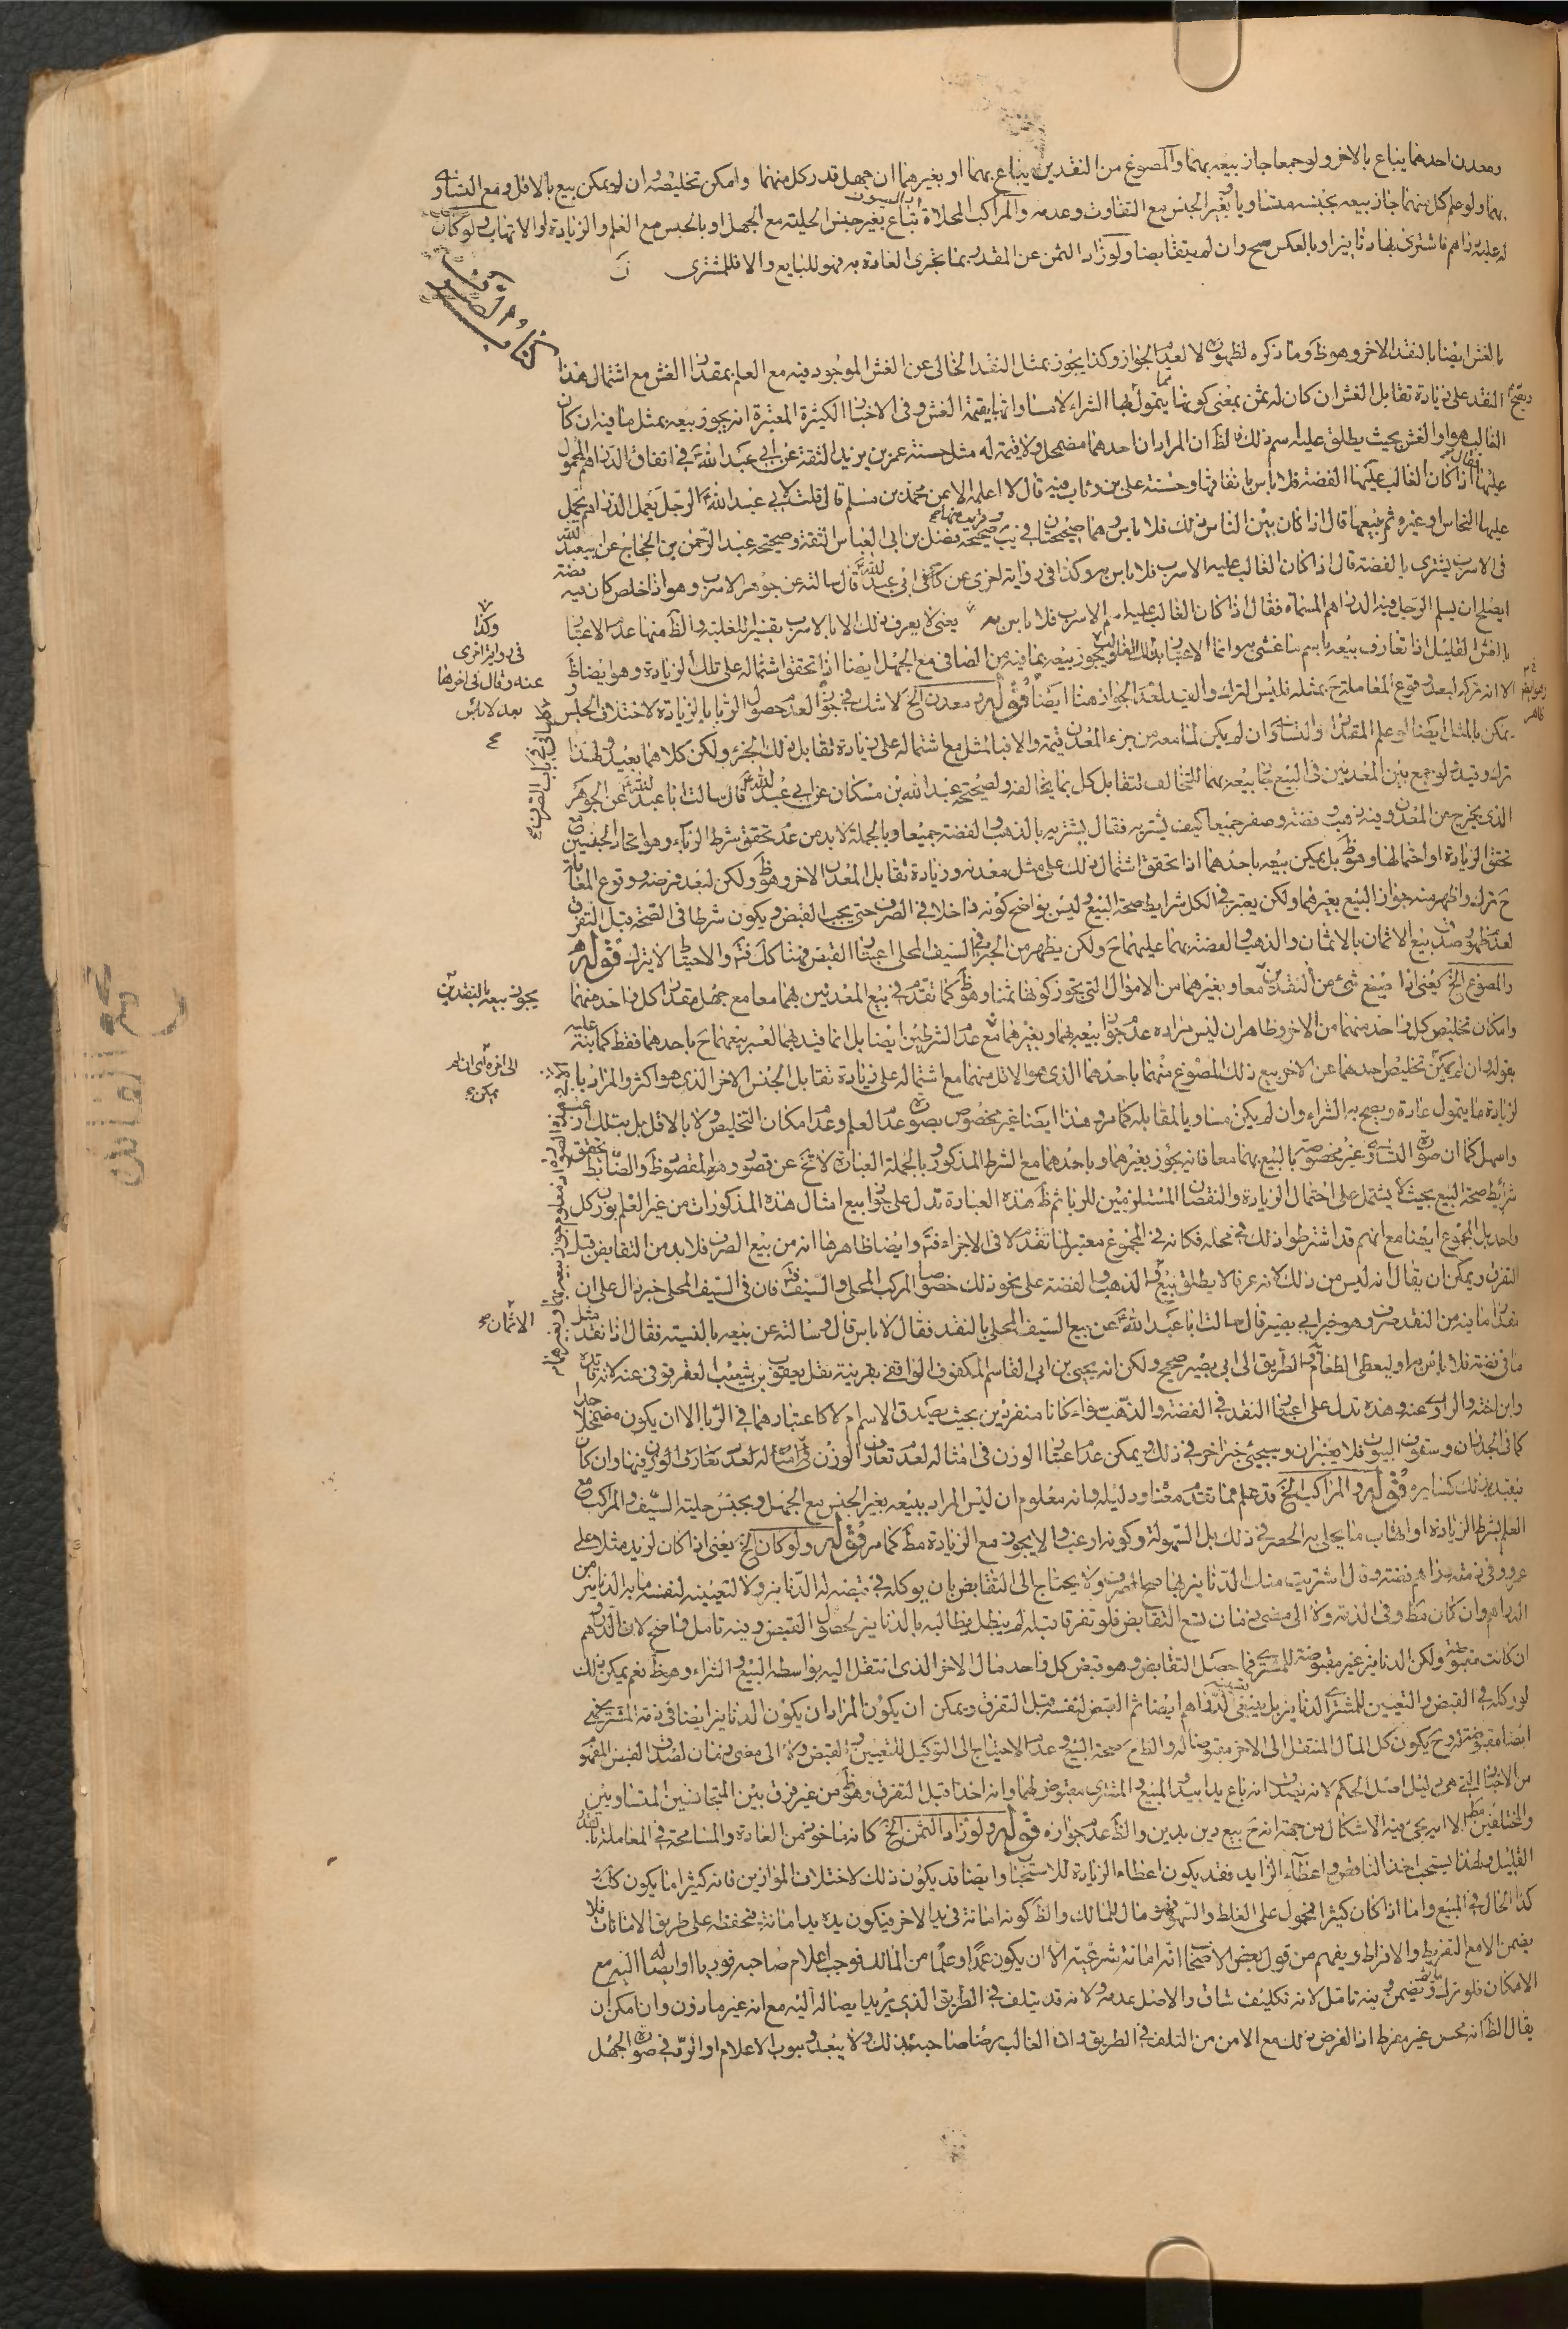 ومعدن احدهما يباع بالاخر ولو جمعا جاز بيعه بهما والمصوغ من النقدين يباع بهما او بغيرهما ان جهل قدر كل منهما وامكن تخليصه وان لم يمكن بيع بالاقل ومع التساوي
بهما ولو علم كل منهما جاز بيعه بجنسه متساويا وبغير الجنس مع التفاوت وعدمه والمراكب المحلاة تباع بغير جنس الحلية مع الجهل او بالجنس مع العلم والزيادة او الاتهاب ولو كان
له عليه دراهم فاشترى بها دنانير او بالعكس صح وان لم يتقابضا ولو زاد الثمن عن المقدر بما تجرى العادة به فهو للبايع والا فللمشترى
بالغش ايضا بالنقد الاخر وهو ظ وما ذكره لظهوره لا لعدم الجواز وكذا يجوز بمثل النقد الخالى عن الغش الموجود فيه مع العلم بمقدار الغش مع اشتمال هذا
النقد على زيادة تقابل الغش ان كان له ثمن بمعنى كونها مما يتمول لها الشراء لا مساواتها بقيمة الغش وفى الاخبار الكثيرة المعتبرة انه يجوز بيعه بمثل ما فيه ان كان
الغالب هو او الغش بحيث يطلق عليه اسم ذلك فالظ ان المراد ان احدهما مضمحل ولا قيمة له مثل حسنة عمر بن يزيد الثقة عن ابى عبد الله ع فى انفاق الدراهم المحمول
عليها فقال اذا كان الغالب عليها الفضة فلا باس بانفاقها وحسنة على بن رئاب فيه قال لا اعلمه الا عن محمد بن مسلم قال قلت لابى عبد الله ع الرجل يعمل الدراهم يحمل
عليها النحاس او غيره ثم يبيعها قال اذا كان بين الناس ذلك فلا باس وهما صحيحتان فى يب وصحيحة فضل بن ابى العباس الثقة وصحيحة عبد الرحمن بن الحجاج عن ابى عبد الله
فى الاسرب يشترى بالفضة قال اذا كان الغالب عليه الاسرب فلا باس به وكذا فى رواية اخرى عن ابى عبد الله ع قال سالته عن جوهر الاسرب وهو اذا خلص كان فيه فضة
ايصلح ان يسلم الرجل فيه الدراهم المسماة فقال اذا كان الغالب عليه اسم الاسرب فلا باس به يعنى لا يعرف ذلك الا بالاسرب تفسير للغلبة والظ منها عدم الاعتبار
بالغش القليل اذا تعارف بيعه باسم ما غش به وانما الاعتبار بذلك الغالب ويجوز بيعه بما فيه من الصافى مع الجهل ايضا اذا تحقق اشتماله على تلك الزيادة وهو ايضا ظ
الا انه تركه لبعد وقوع المعاملة ح بمثله فليس الترك والقيد لعدم الجواز هنا ايضا قوله ومعدن الخ لا شك فى جوازه لعدم حصول الربا بالزيادة لاختلاف الجنس و
يمكن بالمثل ايضا لو علم المقدار والتساوى ان لم يكن لما معه من جزء المعدن قيمة والا فبالمثل مع اشتماله على زيادة تقابل ذلك الجزء ولكن كلاهما بعيد ولهذا
ترك وقيده لو جمع بين المعدنين فى البيع جاز بيعه بهما للتخالف لتقابل كل بما يخالفه ولصحيحة عبد الله بن مسكان عن ابى عبد الله ع قال سالت ابا عبد الله ع عن الجوهر
الذى يخرج من المعدن وفيه ذهب وفضة وصفر جميعا كيف يشتريه فقال يشتريه بالذهب والفضة جميعا وبالجملة لا بد من عدم تحقق شرط الرباء وهو اتحاد الجنسين مع
تحقق الزيادة او احتمالها وهو ظ بل يمكن بيعه باحدهما اذا تحقق اشتمال ذلك على مثل معدنه وزيادة تقابل المعدن الاخر وهو ظ ولكن لبعد فرضه ووقوع المعاملة
ح ترك واظهر منه جواز البيع بغيرهما ولكن يعتبر فى الكل شرايط صحة البيع وليس بواضح كونه داخلا فى الصرف حتى يجب القبض ويكون شرطا فى الصحة قبل التفرق
لعدم ظهور صدق بيع الاثمان بالاثمان والذهب والفضة بهما عليهما ح ولكن يظهر من الخبر فى السيف المحلى اعتبار القبض فهنا كذلك فتأمل والاحتياط لا يترك قوله
والمصوغ الخ يعنى اذا صيغ شئ من النقدين معا وبغيرهما من الاموال التى يجوز كونها ثمنا وهو ظ كما تقدم فى بيع المعدنين بهما معا مع جهل مقدار كل واحد منهما
وامكان تخليص كل واحد منهما من الاخر وظاهر ان ليس مراده عدم جواز بيعه بهما وبغيرهما مع عدم الشرطين ايضا بل انما قيد بهما لعسر بيعهما ح باحدهما فقط كما بينه
بقوله وان لم يمكن تخليص احدهما عن الاخر بيع ذلك المصوغ منهما باحدهما الذى هو الاقل منهما مع اشتماله على زيادة تقابل الجنس الاخر الذى هو اكثر والمراد با
لزيادة ما يتمول عادة ويصح به الشراء وان لم يكن مساويا لمقابله كما مر وهذا ايضا غير مخصوص بصورة عدم العلم وعدم امكان التخليص ولا بالاقل بل بتلك
واسهل كما ان صورة التساوى غير مخصوصة بالبيع بهما معا فانه يجوز بغيرهما وباحدهما مع الشرط المذكور وبالجملة العبارة لا تخ عن قصور وهو المقصود ظ والضابط تحقق
شرايط صحة البيع بحيث لا يشتمل على احتمال الزيادة والنقصان المستلزمين للربا ثم ظ هذه العبارة تدل على جواز بيع امثال هذه المذكورات من غير العلم بوزن كل
واحد بل المجموع ايضا مع انهم قد اشترطوا ذلك فى محله فكانه فى المجموع معتبر لما تقدم لا فى الاجزاء فتأمل وايضا ظاهرها انه من بيع الصرف فلا بد من التقابض قبل
التفرق ويمكن ان يقال انه ليس من ذلك لانه عرفا لا يطلق بيع الذهب والفضة على نحو ذلك خصوصا المركب المحلى والسيف فتأمل فان فى السيف المحلى خبر دال على ان
نقد ما فيه من النقد صرف وهو خبر ابى بصير قال سالت ابا عبد الله ع عن بيع السيف المحلى بالنقد فقال لا باس قال وسالته عن بيعه بالنسية فقال اذا نقد مثل
ما فى فضته فلا باس به او ليعطى الطعام والطريق الى ابى بصير صحيح ولكن انه يحيى بن ابى القاسم المكفوف الواقفى بقرينة نقل يعقوب بن شعيب العقرقوفى عنه لانه قائده
وابن اخته والراوى عنه وهذه تدل على اعتبار النقد فى الفضة والذهب وان كانا منفردين بحيث يصدق الاسم ام لا كاعتبارهما فى الربا الا ان يكون مضمحلا جدا
كما فى الجدران وسقوف البيوت فلا يعتبران وسيجئ خبر اخر فى ذلك ويمكن عدم اعتبار الوزن فى امثاله لعدم تعارف الوزن فى امثاله لعدم تعارف الوزن فيها وان كان
يقيد به ذلك كسايره قوله والمراكب الخ قد علم مما تقدم معناه ودليله وانه معلوم ان ليس المراد ببيعه بغير الجنس مع الجهل وبجنس حلية السيف والمراكب مع
العلم بشرط الزيادة او اتهاب ما يحلى به الحصر فى ذلك بل السهولة وكونه ارغب والا يجوز مع الزيادة مط كما مر قوله ولو كان الخ يعنى اذا كان لزيد مثلا على
عمرو فى ذمته دراهم فضة وقال اشتريت منك الدنانير بها صح الصرف ولا يحتاج الى التقابض بان يوكله فى قبضه له الدنانير ولا لتعيينه لنفسه ما به الدنانير من
الدراهم وان كان مط وفى الذمة ولا الى مضى زمان يسع التقابض فلو تفرقا قبله لم يبطل فيطالبه بالدنانير لحصول القبض وفيه تامل واضح لان الدراهم
ان كانت مقبوضة ولكن الدنانير غير مقبوضة للمشترى فما حصل التقابض وهو قبض كل واحد مال الاخر الذى انتقل اليه بواسطة البيع والشراء وهو ظ نعم يمكن ذلك
لو وكله فى القبض والتعيين للمشترى الدنانير بل ينبغى للدراهم ايضا ثم القبض لنفسه قبل التفرق ويمكن ان يكون المراد ان يكون الدنانير ايضا فى ذمة المشترى فهى
ايضا مقبوضة له وح يكون كل المال المنتقل الى الاخر مقبوضا له والظ ح صحة البيع وعدم الاحتياج الى التوكيل للتعيين والقبض ولا الى مضى زمان لصدق القبض المفهوم
من الاخبار التى هى دليل اصل الحكم لانه يصدق انه باع يدا بيد والمبيع والمشترى مقبوض لهما وانه اخذ قبل التفرق وهو ظ من غير فرق بين المتجانسين المتساويين
والمختلفين مط الا انه يجئ فيه الاشكال من جهة انه ح بيع دين بدين والظ عدم جوازه قوله ولو زاد الثمن الخ كانه ماخوذ من العادة والمسامحة فى المعاملة
القليل ولهذا يستحب اخذ الناقص واعطاء الزايد فقد يكون اعطاء الزيادة للاستحباب وايضا قد يكون ذلك لاختلاف الموازين فانه كثيرا ما يكون كذلك
كذا الحال فى المبيع واما اذا كان كثيرا فمحمول على الغلط والسهو فهو مال للمالك والظ كونه امانة فى يد الاخر فيكون يده يد امانة فيحفظه على طريق الامانات فلا
يضمن الا مع التفريط والافراط ويفهم من قول بعض الاصحاب انه امانة شرعية الا ان يكون عمدا وعلما من المالك فوجب اعلام صاحبه فوريا او ايصاله اليه مع
الامكان فلو ترك يضمن وفيه تامل لانه تكليف شاق والاصل عدمه ولانه قد يتلف فى الطريق الذى يريد ايصاله اليه مع انه غير ماذون وان امكن ان
يقال الظ انه محسن غير مفرط اذ الفرض ذلك مع الامن من التلف فى الطريق واذ الغالب رضا صاحبه بذلك ولا يبعد وجوب الاعلام او الرد فى صورة الجهل
وكذا
فى رواية اخرى
عنه وقال فى اخرها
بعد لا باس
يجوز بيعه بالنقدين
الى اخره اى ان لم
يمكن
الاثمان